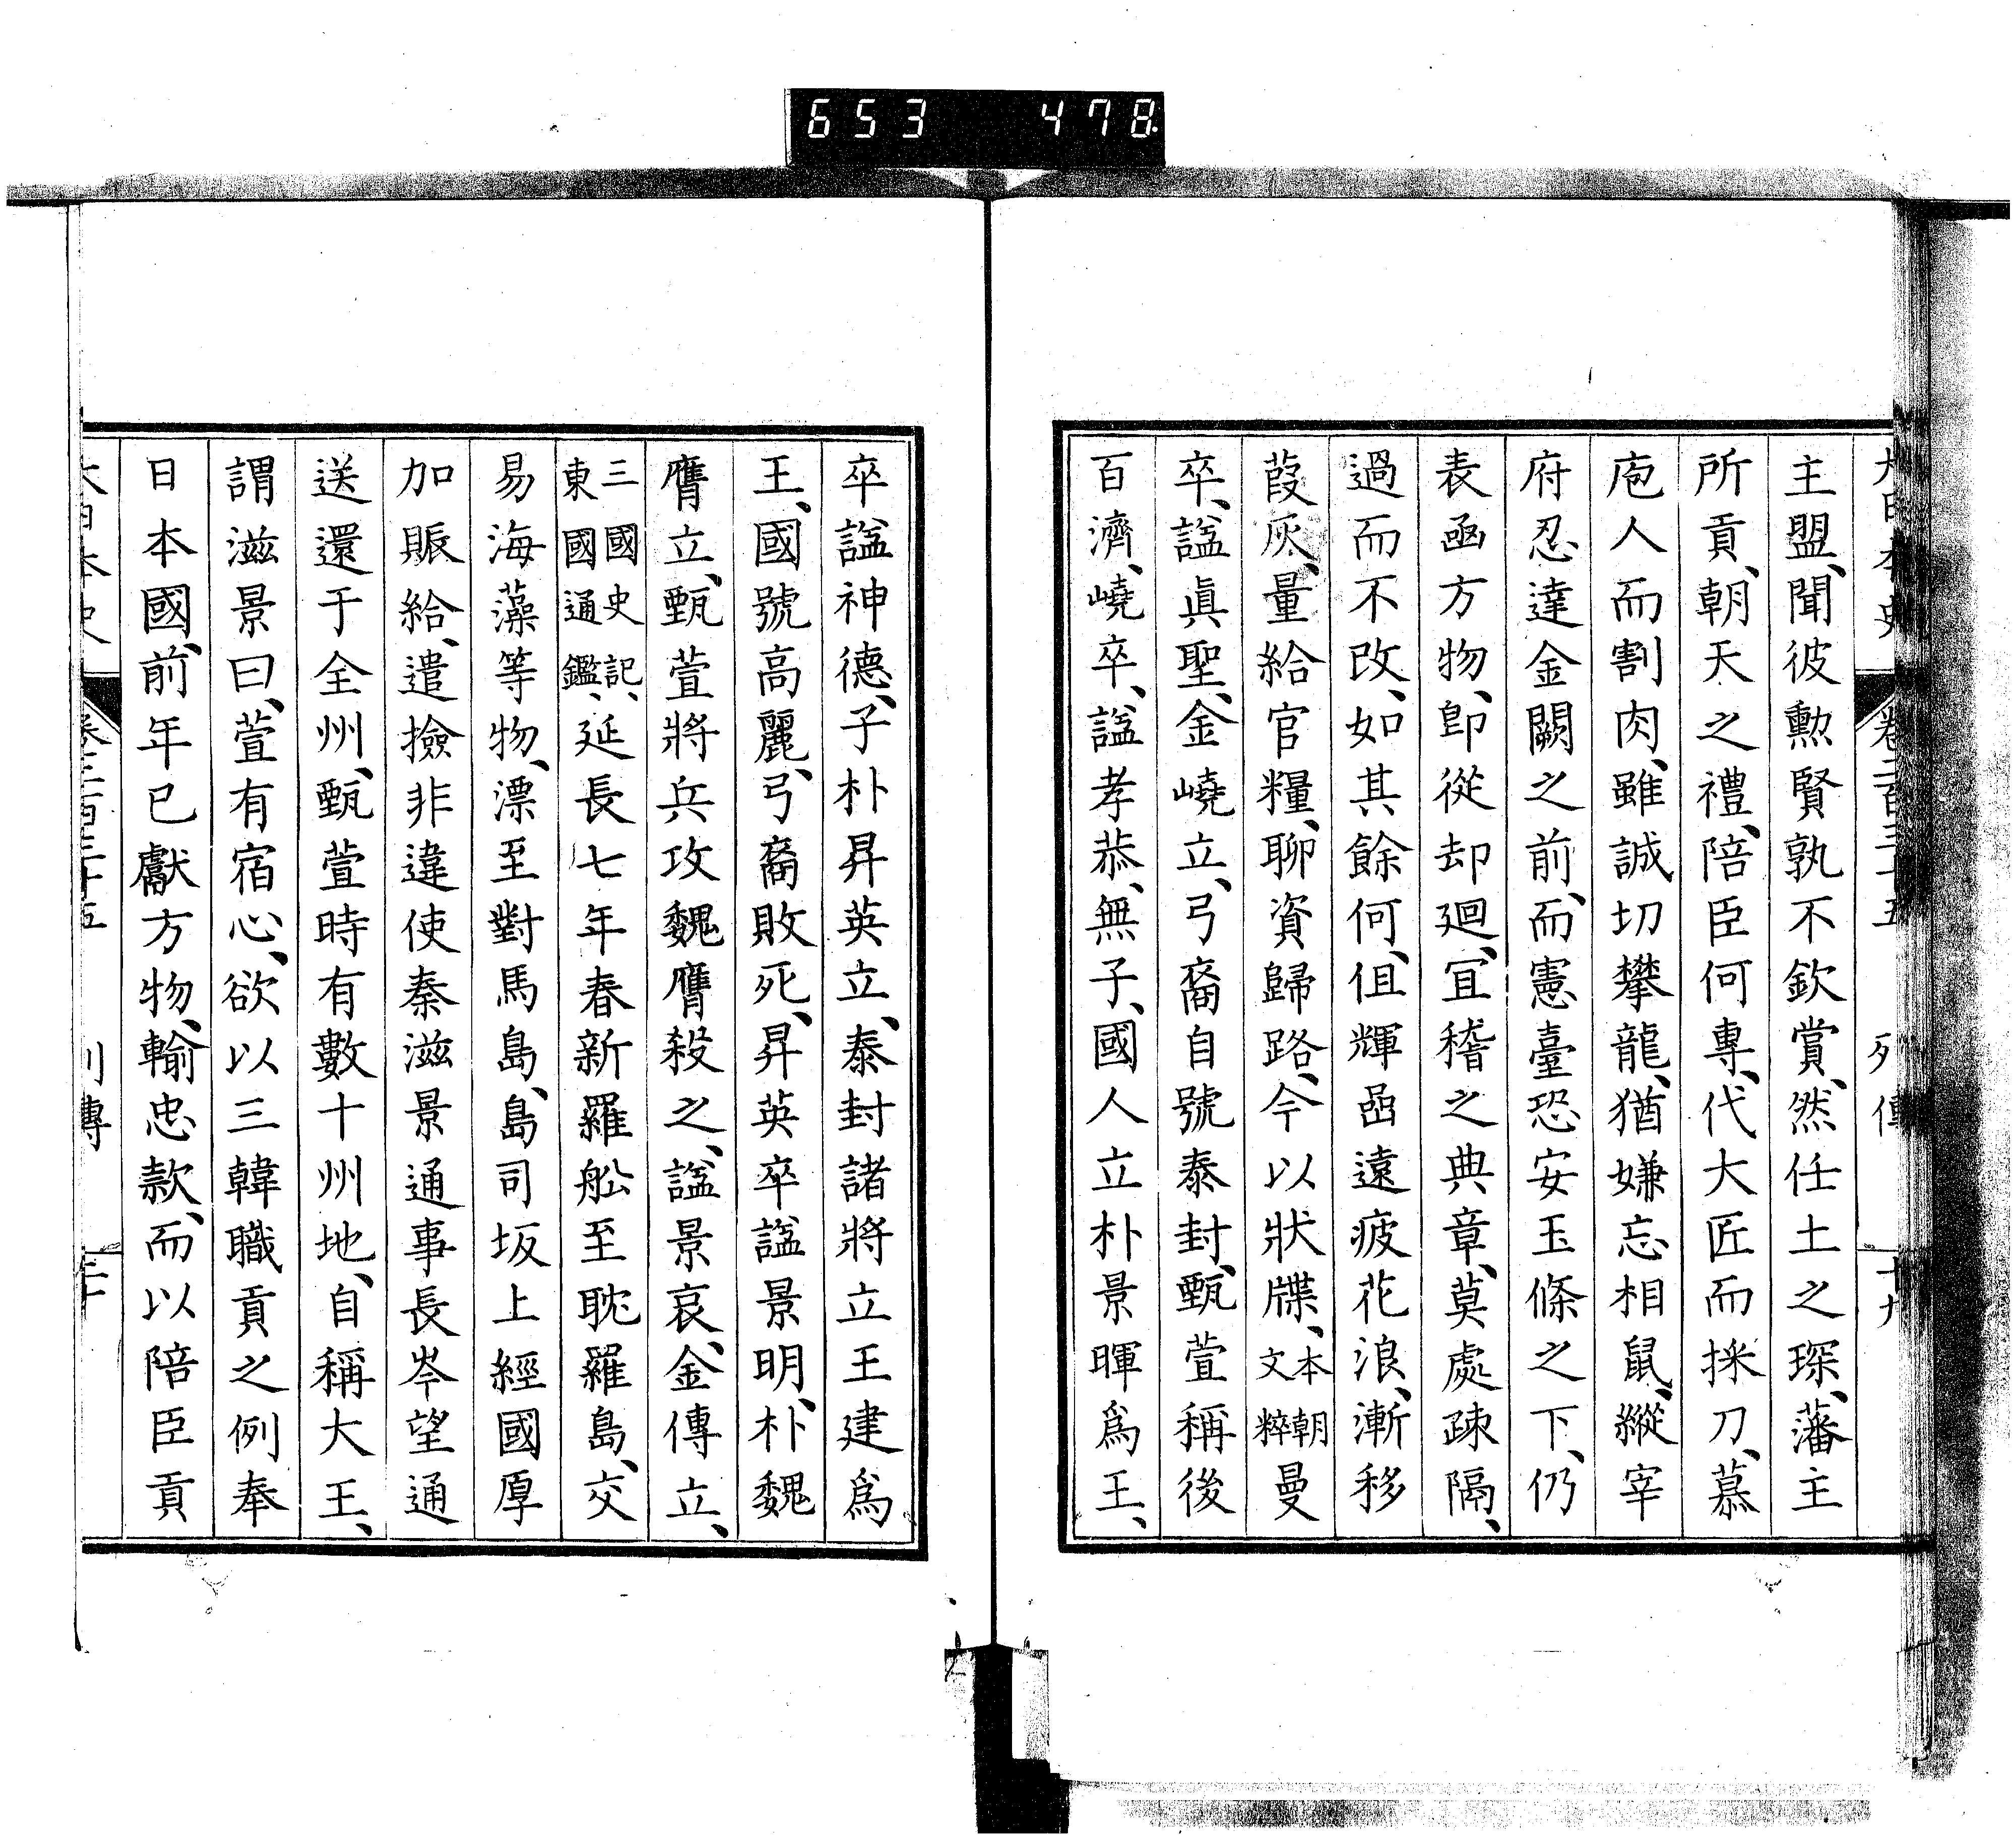 653 478
大日本史 卷二百三十五 列傳 十九
主盟、聞彼勲賢孰不欽賞、然任土之琛、藩主
所貢、朝天之禮、陪臣何專、代大匠而採刀、慕
庖人而割肉、雖誠切攀龍、猶嫌忘相鼠、縱宰
府忍達金闕之前、而憲臺恐安玉條之下、仍
表函方物、卽從却廻、宜稽之典章、莫處疎隔、
過而不改、如其餘何、但輝凾遠疲花浪、漸移
葭灰、量給官糧、聊資歸路、今以狀牒、本朝文粹曼
卒、諡眞聖、金嶢立、弓裔自號泰封、甄萱稱後
百濟、嶢卒、諡孝恭、無子、國人立朴景暉爲王、
卒諡神德、子朴昇英立、泰封諸將立王建爲
王、國號高麗、弓裔敗死、昇英卒諡景明、朴魏
膺立、甄萱將兵攻魏膺殺之、諡景哀、金傳立、
三國史記、東國通鑑、延長七年春新羅舩至耽羅島、交
易海藻等物、漂至對馬島、島司坂上經國厚
加賑給、遣撿非違使秦滋景通事長岑望通
送還于全州、甄萱時有數十州地、自稱大王、
謂滋景曰、萱有宿心、欲以三韓職貢之例奉
日本國、前年已獻方物、輸忠款、而以陪臣貢
大日本史 卷二百三十五 列傳 二十